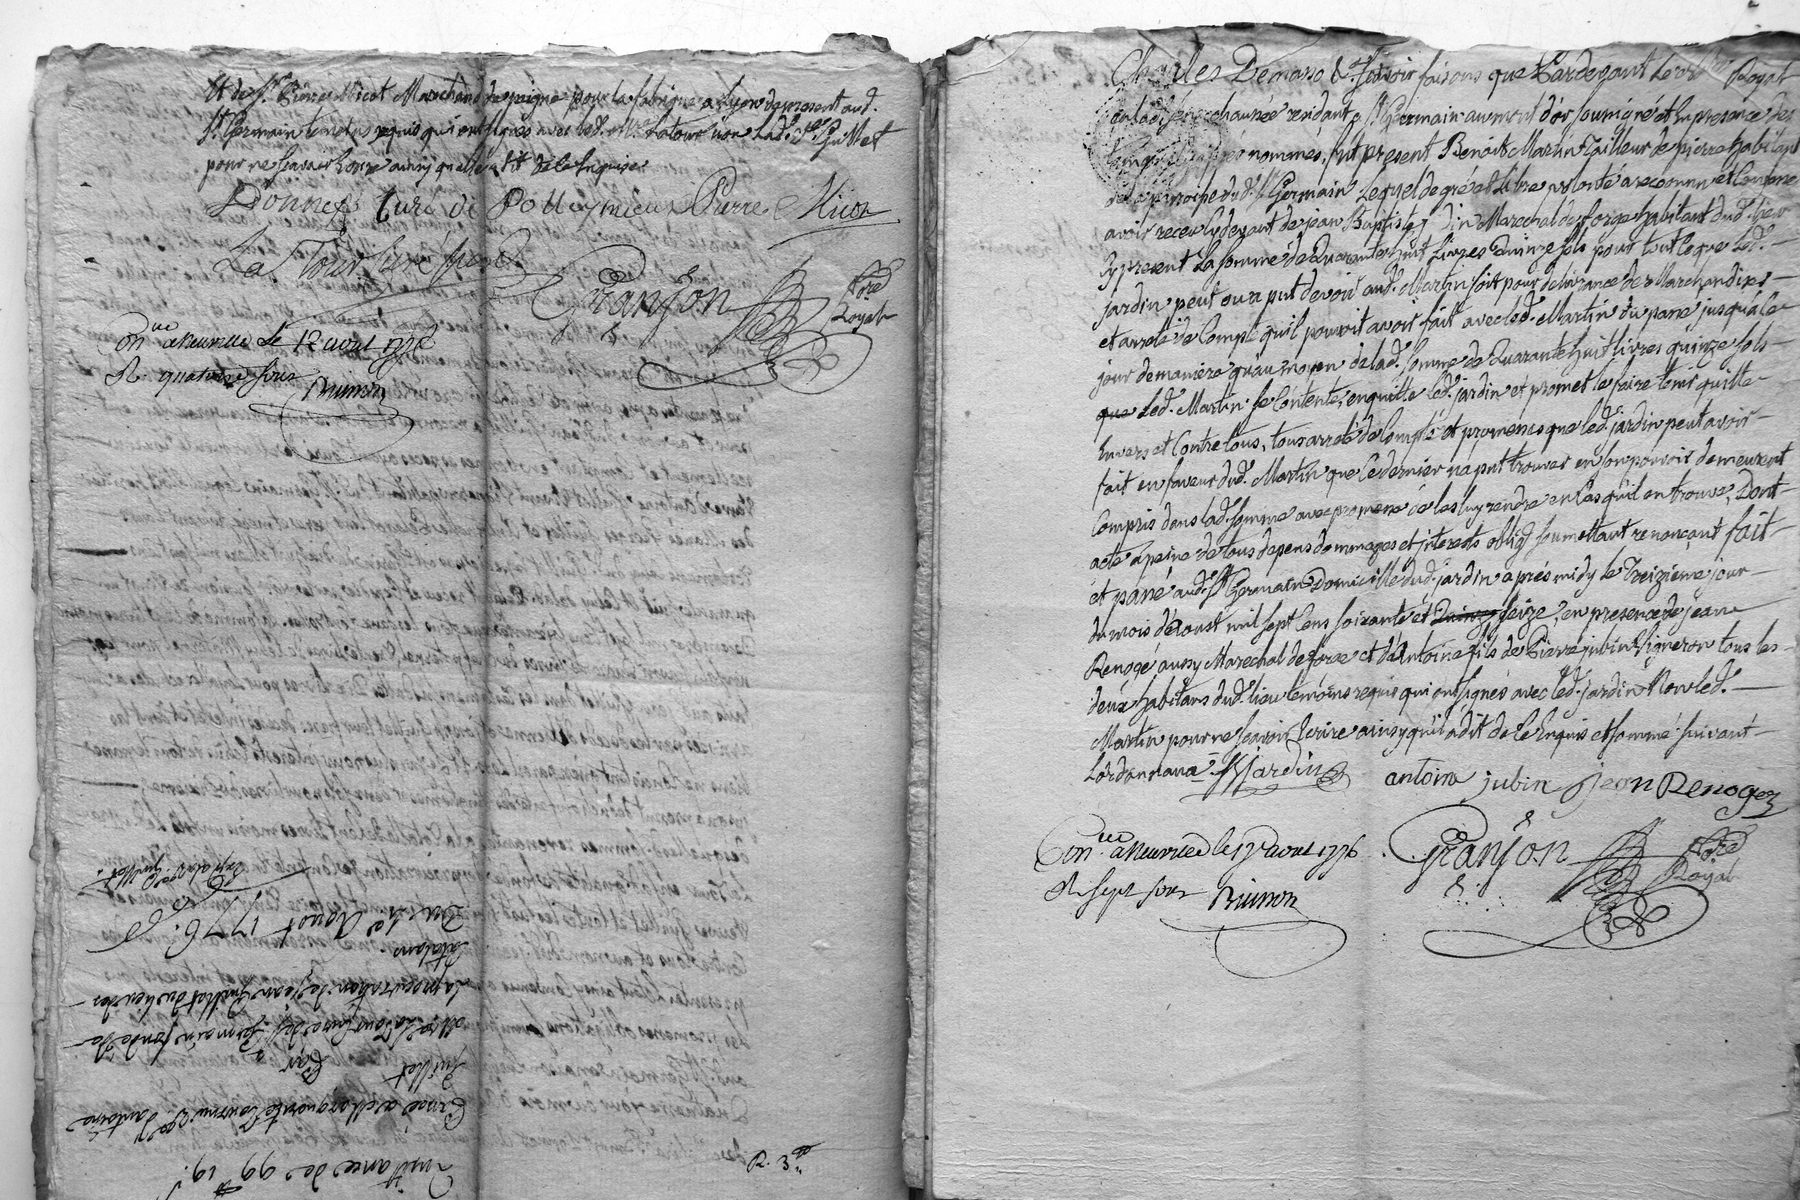 Et de Sr. Pierre Micot Marchand de peigne pour la fabrique a Lyon de present aud.
St. Germain temoins requis qui ont signés avec led. Mre. Latour non lad. ve. Guillet
pour ne scavoir Ecrire ainsy quelle a dit de ce Enquise
Donnet Curé de Polleymieux Pierre Micot
La Tour Curé
Granjon
Nre
Royal
Conlle a Neuville le 12 aout 1776
R quatorze sous
Brisson
Quittance de 99 tt 19 s
Passé a Marguerite ve. d'antoine
Guillet
Par
Mre. Latour Curé de St. Germain fondé de
la procuration de Jean Guillet du lieu des
Catalans.
Du 4e Aout 1776.
Exp. a lad. ve. Guillet.
R. 3
Charles Demasso &a. Scavoir faisons que Pardevant le Nre. Royal
en lad. Senechaussée residant a St. Germain au mont d'or soussigné et En presence des
temoins cy apres nommés, fut present Benoit Martin Tailleur de pierre habitant
de la paroisse dud. St. Germain Lequel de gré et Libre volonté a reconnu et Confessé
avoir receu cy devant de Jean Baptiste Jardin Marechal de forge habitant dud. lieu
Cy present La somme de Quarante huit Livres Quinze sols pour tout ce que Led.
Jardin peut ou a put devoir aud. Martin soit pour delivrance de Marchandises
et arreté de Compte qu'il pouroit avoir fait avec led. Martin du passé jusqu'a ce
jour de maniere qu'au moyen de lad. somme de Quarante huit livres quinze sols
que Led. Martin se Contente, en quitte led. jardin et promet le faire tenir quitte
Envers et Contre tous, tous arreté de Compte et promesses que led. jardin peut avoir
fait en faveur dud. Martin que Ce dernier na put trouver en son pouvoir demeurent
Compris dans lad. somme avec promesse de les luy rendre en Cas qu'il en trouve, Dont
acte a peine de tous depens dommages et interests oblig. soumettant renonçant fait
et passé aud. St. Germain Domicille dud. jardin après midy le Treizieme jour
du mois d'aoust mil sept Cens soixante et Quinze seize, en presence de jean
Renogé aussy Marechal de forge et d'Antoine fils de Pierre jubin Vigneron tous les
deux habitans dud. lieu temoins requis qui ont signés avec led. jardin Non led.
Martin pour ne scavoir Ecrire ainsy qu'il a dit de ce Enquis et sommé suivant
Lordonnance. Bjardin antoine jubin Jean Renogez
Conlle a Neuville le 17 aout 1776
R Sept sous
Brisson
Granjon
Nre
Royal